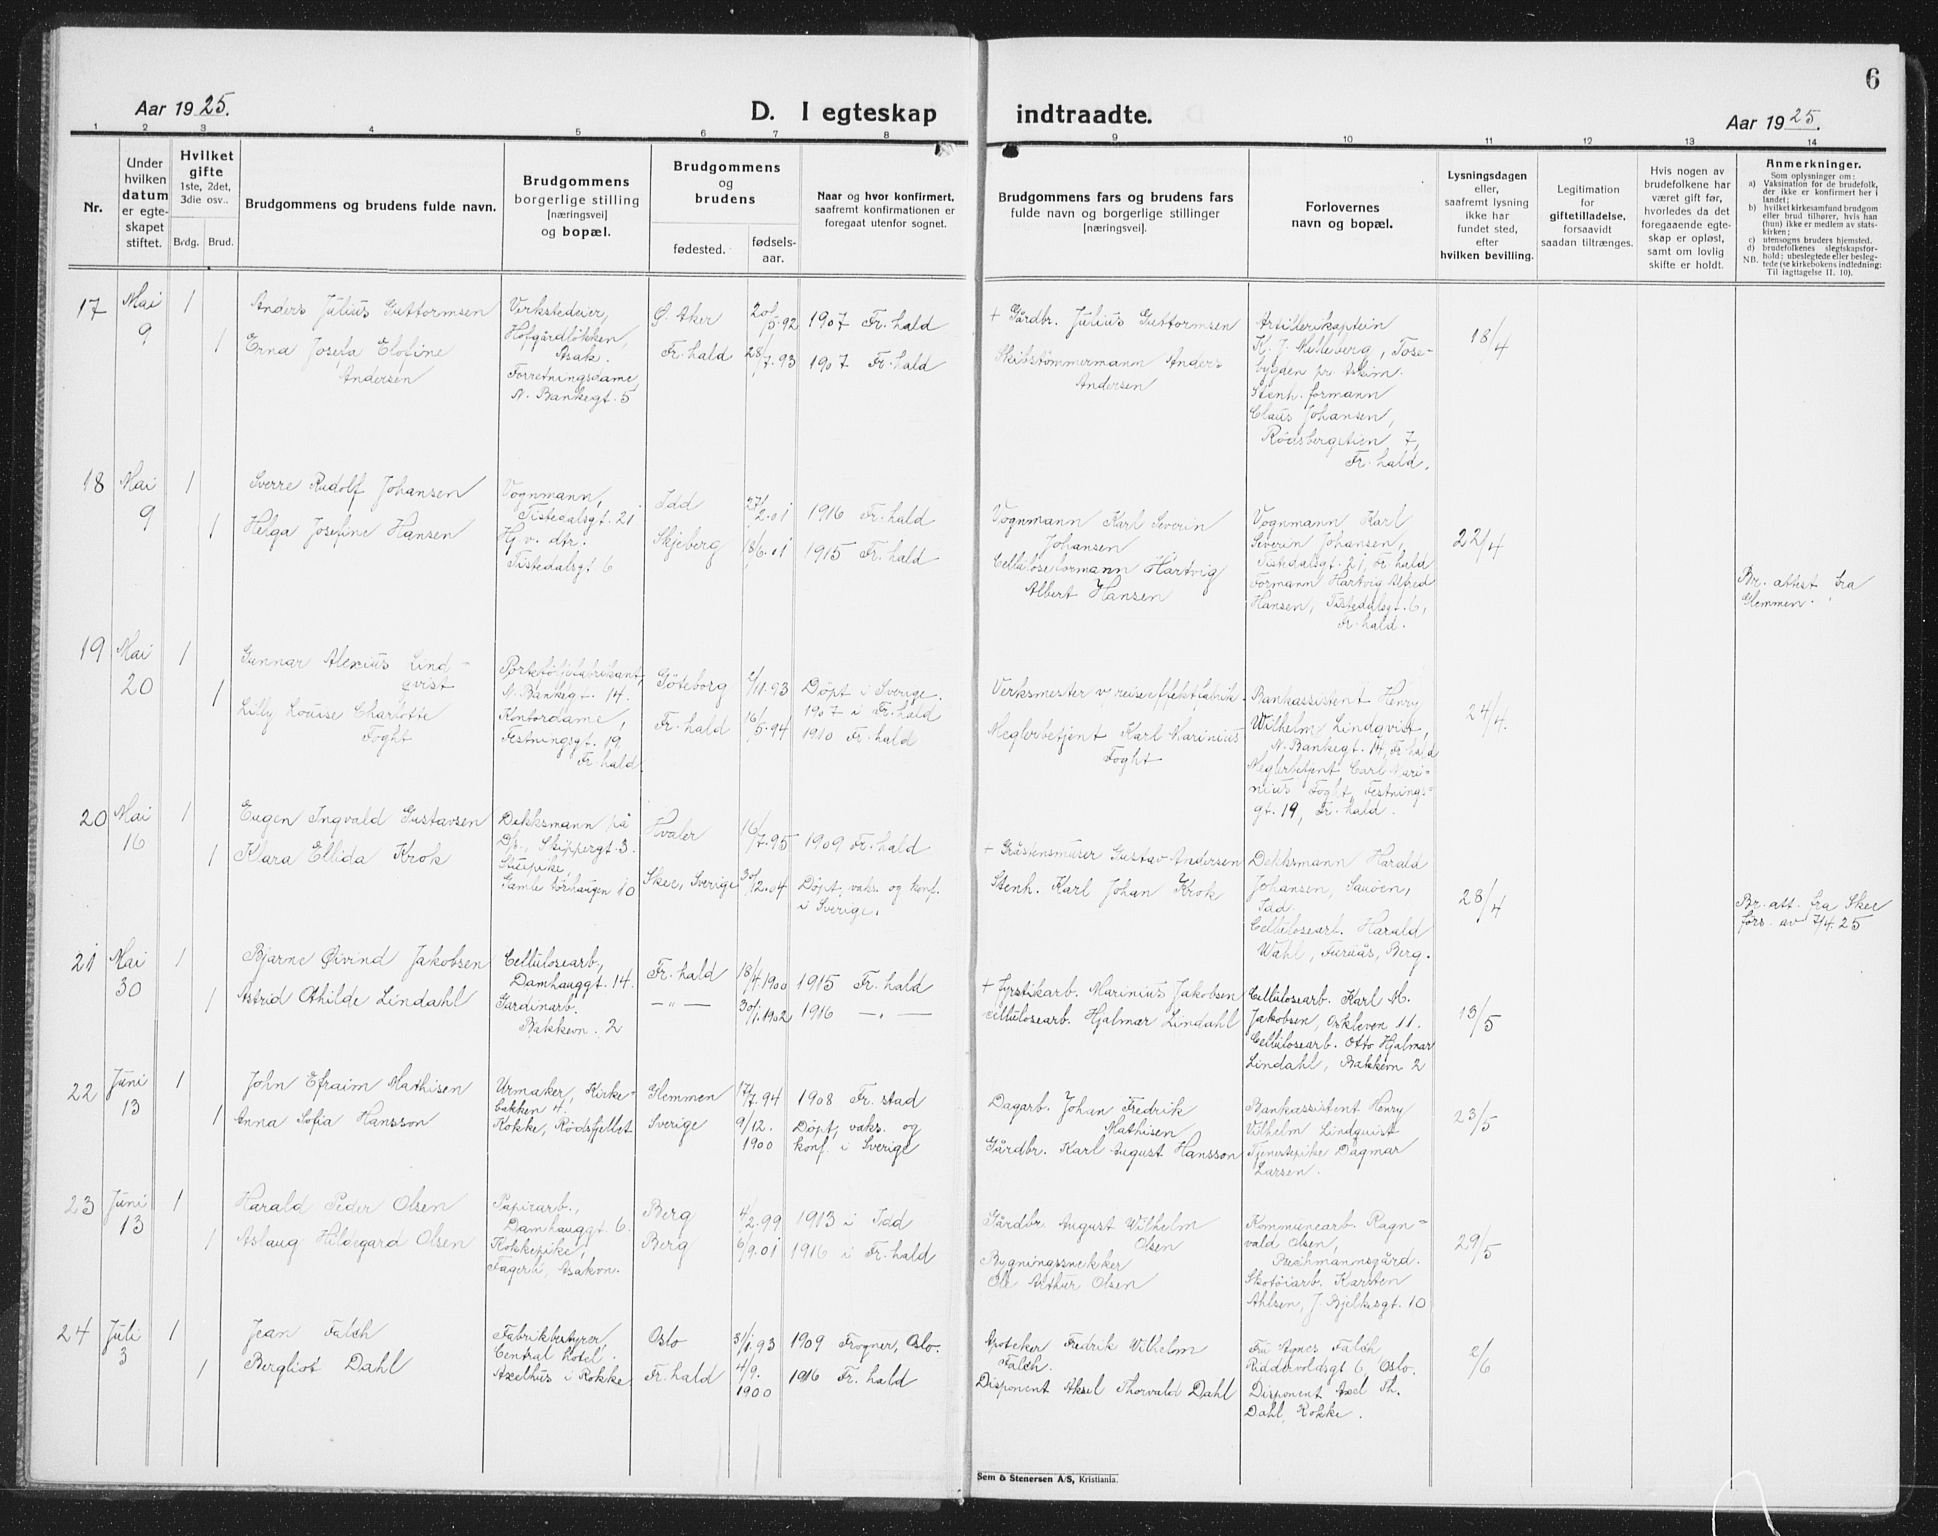 6
Aar 1925.
D. I egteskap indtraadte.
Aar 1925.
1 2 3 4 5 6 7 8 9 10 11 12 13 14
Nr.
Under hvilken datum er egteskapet stiftet.
Hvilket gifte 1ste, 2det, 3die osv..
Brdg. Brud.
Brudgommens og brudens fulde navn.
Brudgommens borgerlige stilling [næringsvei] og bopæl.
Brudgommens og brudens
fødested.
fødselsaar.
Naar og hvor konfirmert, saafremt konfirmationen er foregaat utenfor sognet.
Brudgommens fars og brudens fars fulde navn og borgerlige stillinger [næringsvei].
Forlovernes navn og bopæl.
Lysningsdagen eller, saafremt lysning ikke har fundet sted, efter hvilken bevilling.
Legitimation for giftetilladelse, forsaavidt saadan tiltrænges.
Hvis nogen av brudefolkene har været gift før, hvorledes da det foregaaende egteskap er opløst, samt om lovlig skifte er holdt.
Anmerkninger.
Som oplysninger om:
a) Vaksination for de brudefolk, der ikke er konfirmert her i landet;
b) hvilket kirkesamfund brudgom eller brud tilhører, hvis han (hun) ikke er medlem av statskirken;
c) utensogns bruders hjemsted.
d) brudefolkenes slegtskapsforhold: ubeslegtede eller beslegtede (se kirkebokens indledning: Til iagttagelse II. 10).
NB.
17 Mai 9 1 Anders Julius Guttormsen
Verkstedeier, Hofgårdløkken, Asak.
Ø. Aker 20/5.92 1907 Fr.hald
+ Gårdbr. Julius Guttormsen
Artillerikaptein K. J. Melleberg, Tosebygden pr. Askim.
18/4
1 Erna Josefa Elofine Andersen
Forretningsdame, N. Bankegt. 5
Fr.hald 28/7.93 1907 Fr.hald
Skibstømmermann Anders Andersen
Stenh.formann Claus Johansen, Rødsbergstien 7, Fr.hald.
18 Mai 9 1 Sverre Rudolf Johansen
Vognmann, Tistedalsgt. 21
Idd 27/2.01 1916 Fr.hald
Vognmann Karl Severin Johansen
Vognmann Karl Severin Johansen, Tistedalsgt. 21, Fr.hald
22/4
1 Helga Josefine Hansen
Hj.v. dtr. Tistedalsgt 6
Skjeberg 18/6.01 1915 Fr.hald
Celluloseformann Hartvig Albert Hansen
Formann Hartvig Alfred Hansen, Tistedalsgt. 6, Fr.hald.
Br. attest fra Glemmen.
19 Mai 20 1 Gunnar Alexius Lindqvist
Porteføljefabrikant, N. Bankegt. 14.
Göteborg 2/11.93 Döpt i Sverige. 1907 i Fr.hald
Verksmester v/ reiseeffektfabrik.
Bankassistent Henry Wilhelm Lindqvist, N. Bankegt. 14, Fr.hald
24/4.
1 Lilly Louise Charlotte Foght
Kontordame, Festningsgt. 19 Fr.hald
Fr.hald 16/5.94 1910 Fr.hald
Meglerbetjent Karl Marinius Foght
Meglerbetjent Carl Marinius Foght, Festningsgt. 19, Fr.hald.
20 Mai 16 1 Eugen Ingvald Gustavsen
Dekksmann på D/s., Skippergt. 3.
Hvaler 16/7.95 1909 Fr.hald
+ Gråstensmurer Gustav Andersen
Dekksmann Harald Johansen, Sauøen, Idd.
28/4
1 Klara Ellida Krok
Stuepike, Gamle Tørhaugen 10
Skee, Sverige 30/12.04 Döpt, vaks. og konf. i Sverige.
Stenh. Karl Johan Krok
Cellulosearb. Harald Wahl, Furuås, Berg.
Br. att. fra Skee førs. av 7/4.25
21 Mai 30 1 Bjarne Øivind Jakobsen
Cellulosearb., Damhauggt. 14.
Fr.hald 18/4.1900 1915 Fr.hald
+ Fyrstikarb. Marinius Jakobsen
Cellulosearb. Karl M. Jakobsen, Orkleven 11.
13/5
1 Astrid Othilde Lindahl
Gardinarb. Bakkevn. 2
— " — 30/1.1902 1916 — " —
Cellulosearb. Hjalmar Lindahl
Cellulosearb. Otto Hjalmar Lindahl, Bakkevn 2
22 Juni 13 1 John Efraim Mathisen
Urmaker, Kirkebakken 4.
Glemmen 17/7.94 1908 Fr.stad
Dagarb. Johan Fredrik Mathisen
Bankassistent Henry Vilhelm Lindquist
23/5
1 Anna Sofia Hansson
Kokke, Rødsfjellet
Sverige 9/12.1900 Döpt, vaks. og konf. i Sverige
Gårdbr. Karl August Hansson
Tjenestepike Dagmar Larsen.
23 Juni 13 1 Harald Peder Olsen
Papirarb., Damhauggt. 6.
Berg 4/2.99 1913 i Idd
Gårdbr. August Wilhelm Olsen
Kommunearb. Ragnvald Olsen, Brähmannsgård.
29/5
1 Aslaug Hildegard Olsen
Kokkepike, Fagerli, Asakvn.
Berg 6/9.01 1916 i Fr.hald
Bygningssnekker Ole Arthur Olsen
Skotøiarb. Karsten Ahlsen, J. Bjelkesgt. 10
24 Juli 3 1 Jean Falch
Fabrikbestyrer, Central Hotel.
Oslo 31/1.93 1909 Frogner, Oslo.
Apoteker Fredrik Wilhelm Falch.
Fru Agnes Falch Riddervoldsgt 6, Oslo.
2/6
1 Bergliot Dahl
Axelhus i Rokke
Fr.hald 4/9.1900 1916 Fr.hald
Disponent Aksel Thorvald Dahl
Disponent Axel Th. Dahl, Rokke.
Sem & Stenersen A/S, Kristiania.